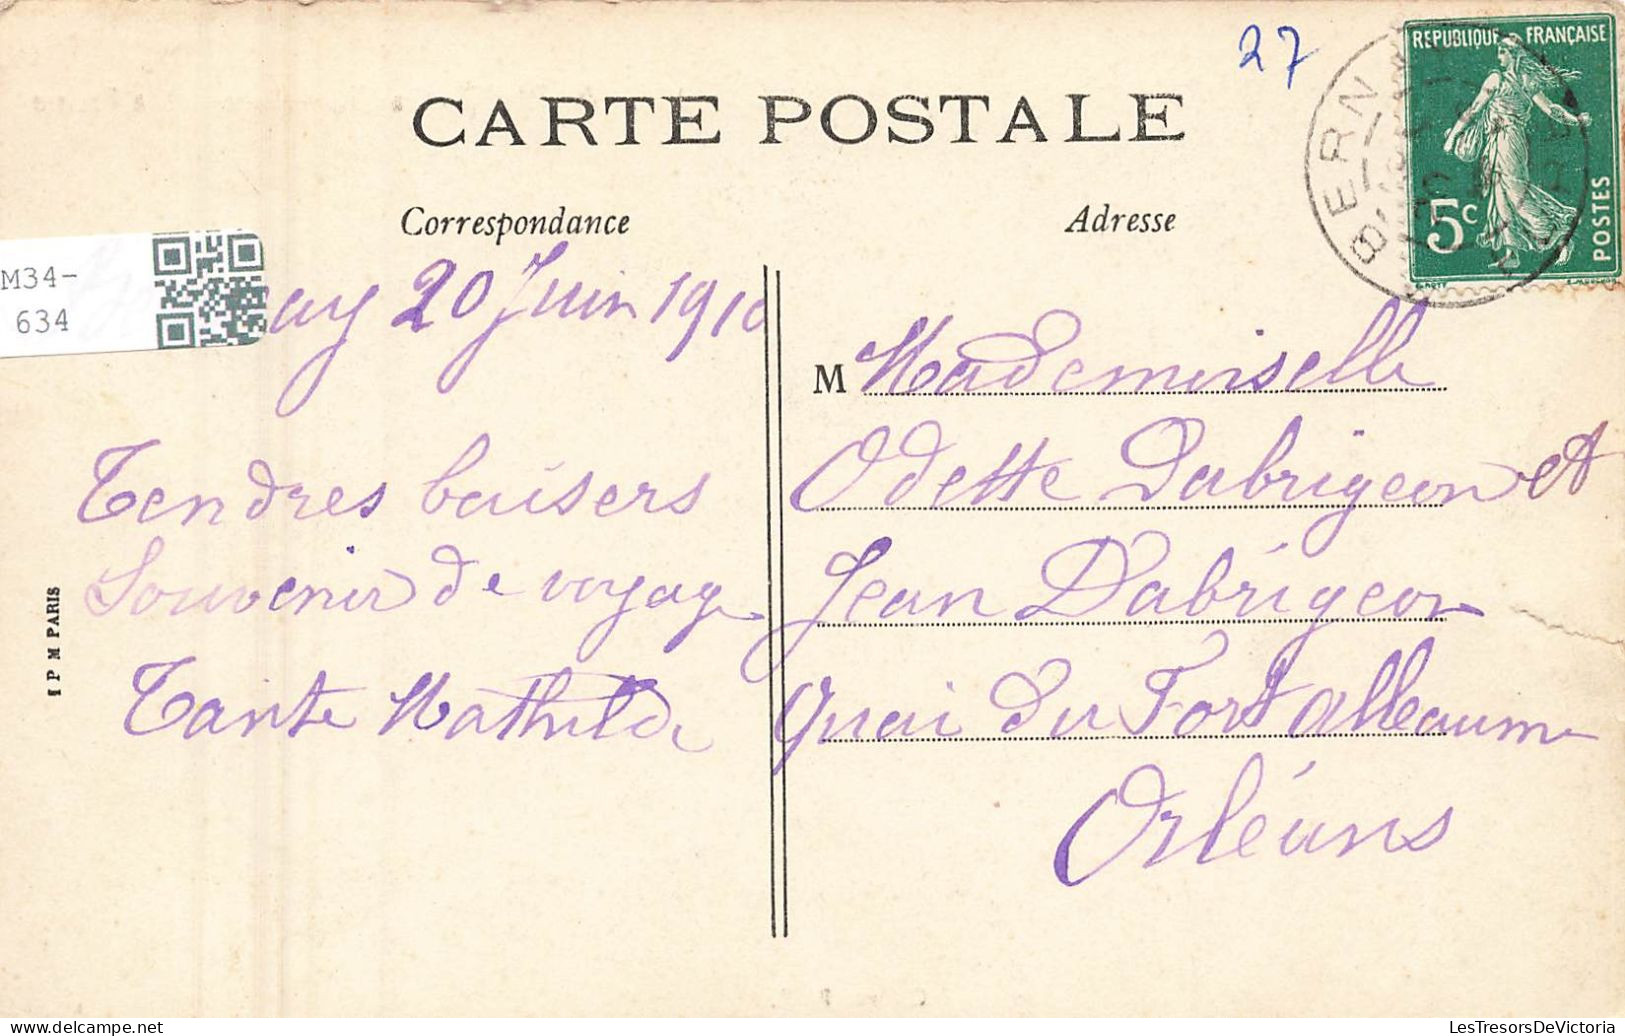 27
REPUBLIQUE FRANÇAISE
5c
POSTES
BERN
CARTE POSTALE
Correspondance
Adresse
M34-
634
20 Juin 1910
M Mademoiselle
Odette Dabrigeon et
Jean Dabrigeon
Quai du Fort Alleaume
Orléans
Tendres baisers
Souvenir de voyage
Tante Mathilde
1 P M PARIS
delcampe.net
LesTresorsDeVictoria